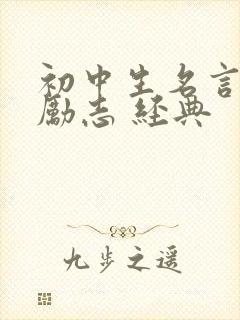 初中生名言
励志 经典
九步之遥